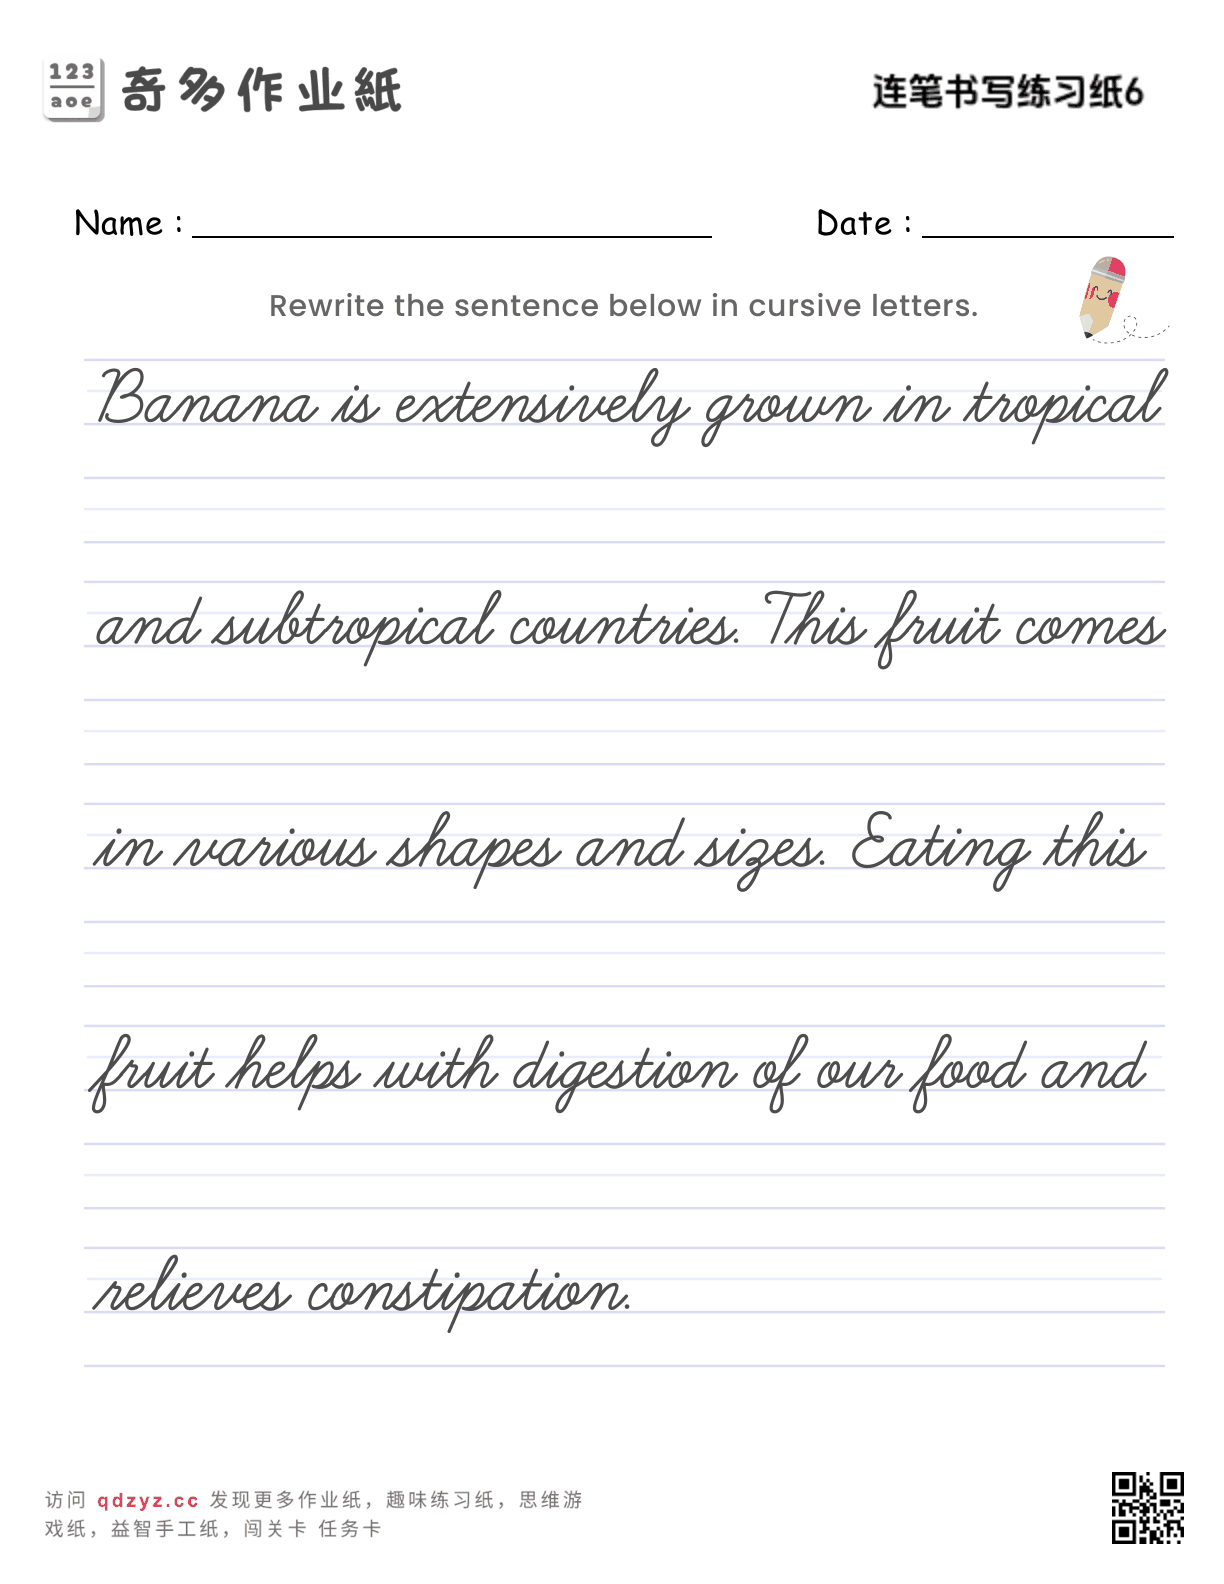 123
aoe
奇多作业紙
连笔书写练习纸6
Name :
Date :
Rewrite the sentence below in cursive letters.
Banana is extensively grown in tropical
and subtropical countries. This fruit comes
in various shapes and sizes. Eating this
fruit helps with digestion of our food and
relieves constipation.
访问 qdzyz.cc 发现更多作业纸，趣味练习纸，思维游
戏纸，益智手工纸，闯关卡 任务卡